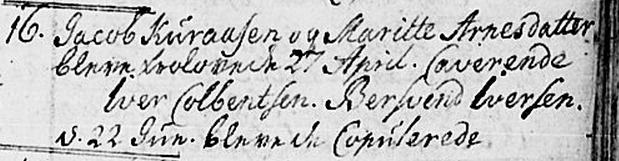 16. Jacob Kuraasen og Maritte Arnesdatter
bleve trolovede 27 April. Caverende
Iver Colbentsen. Bersvend Iversen.
d. 22 Jun. bleve de Copulerede